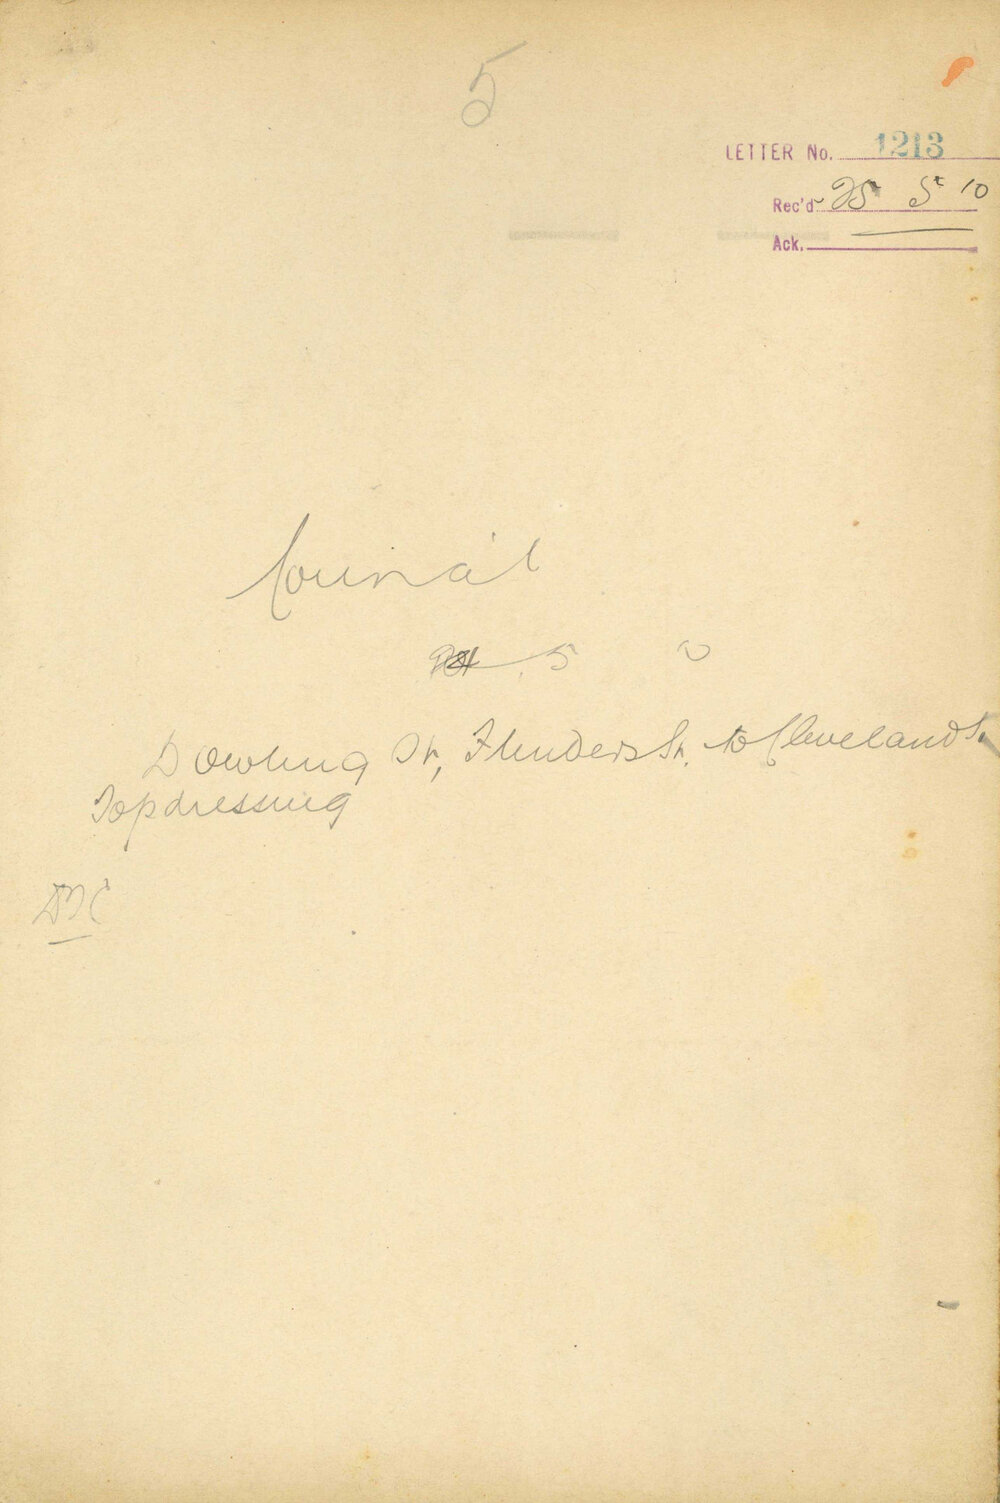 5
LETTER No. 1213
Rec'd 25 5 10
Ack.
Council
5
Dowling St, Flinders St. to Cleveland St.
Topdressing